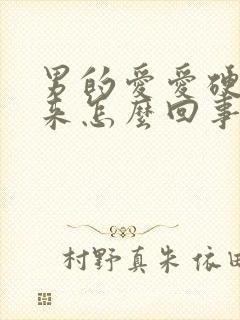 男的愛愛硬
來怎麼回事
村野真朱 依田